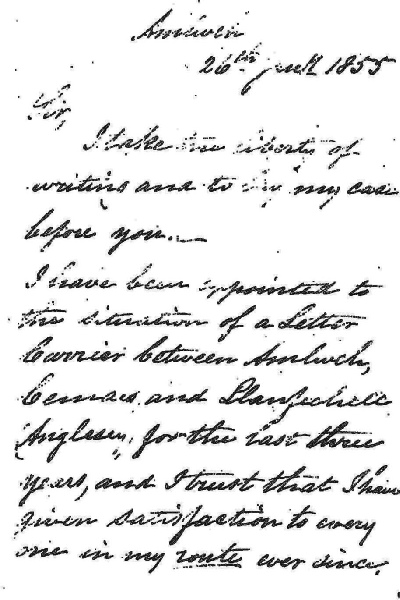 Amlwch
26th 1855
Sir,
I take the liberty of
writing and to lay my case
before you.—
I have been appointed to
the situation of a Letter
Carrier between Amlwch,
Cemaes and Llanfechell
(Anglesey, for the last three
years, and I trust that I have
given satisfaction to every
one in my route ever since,